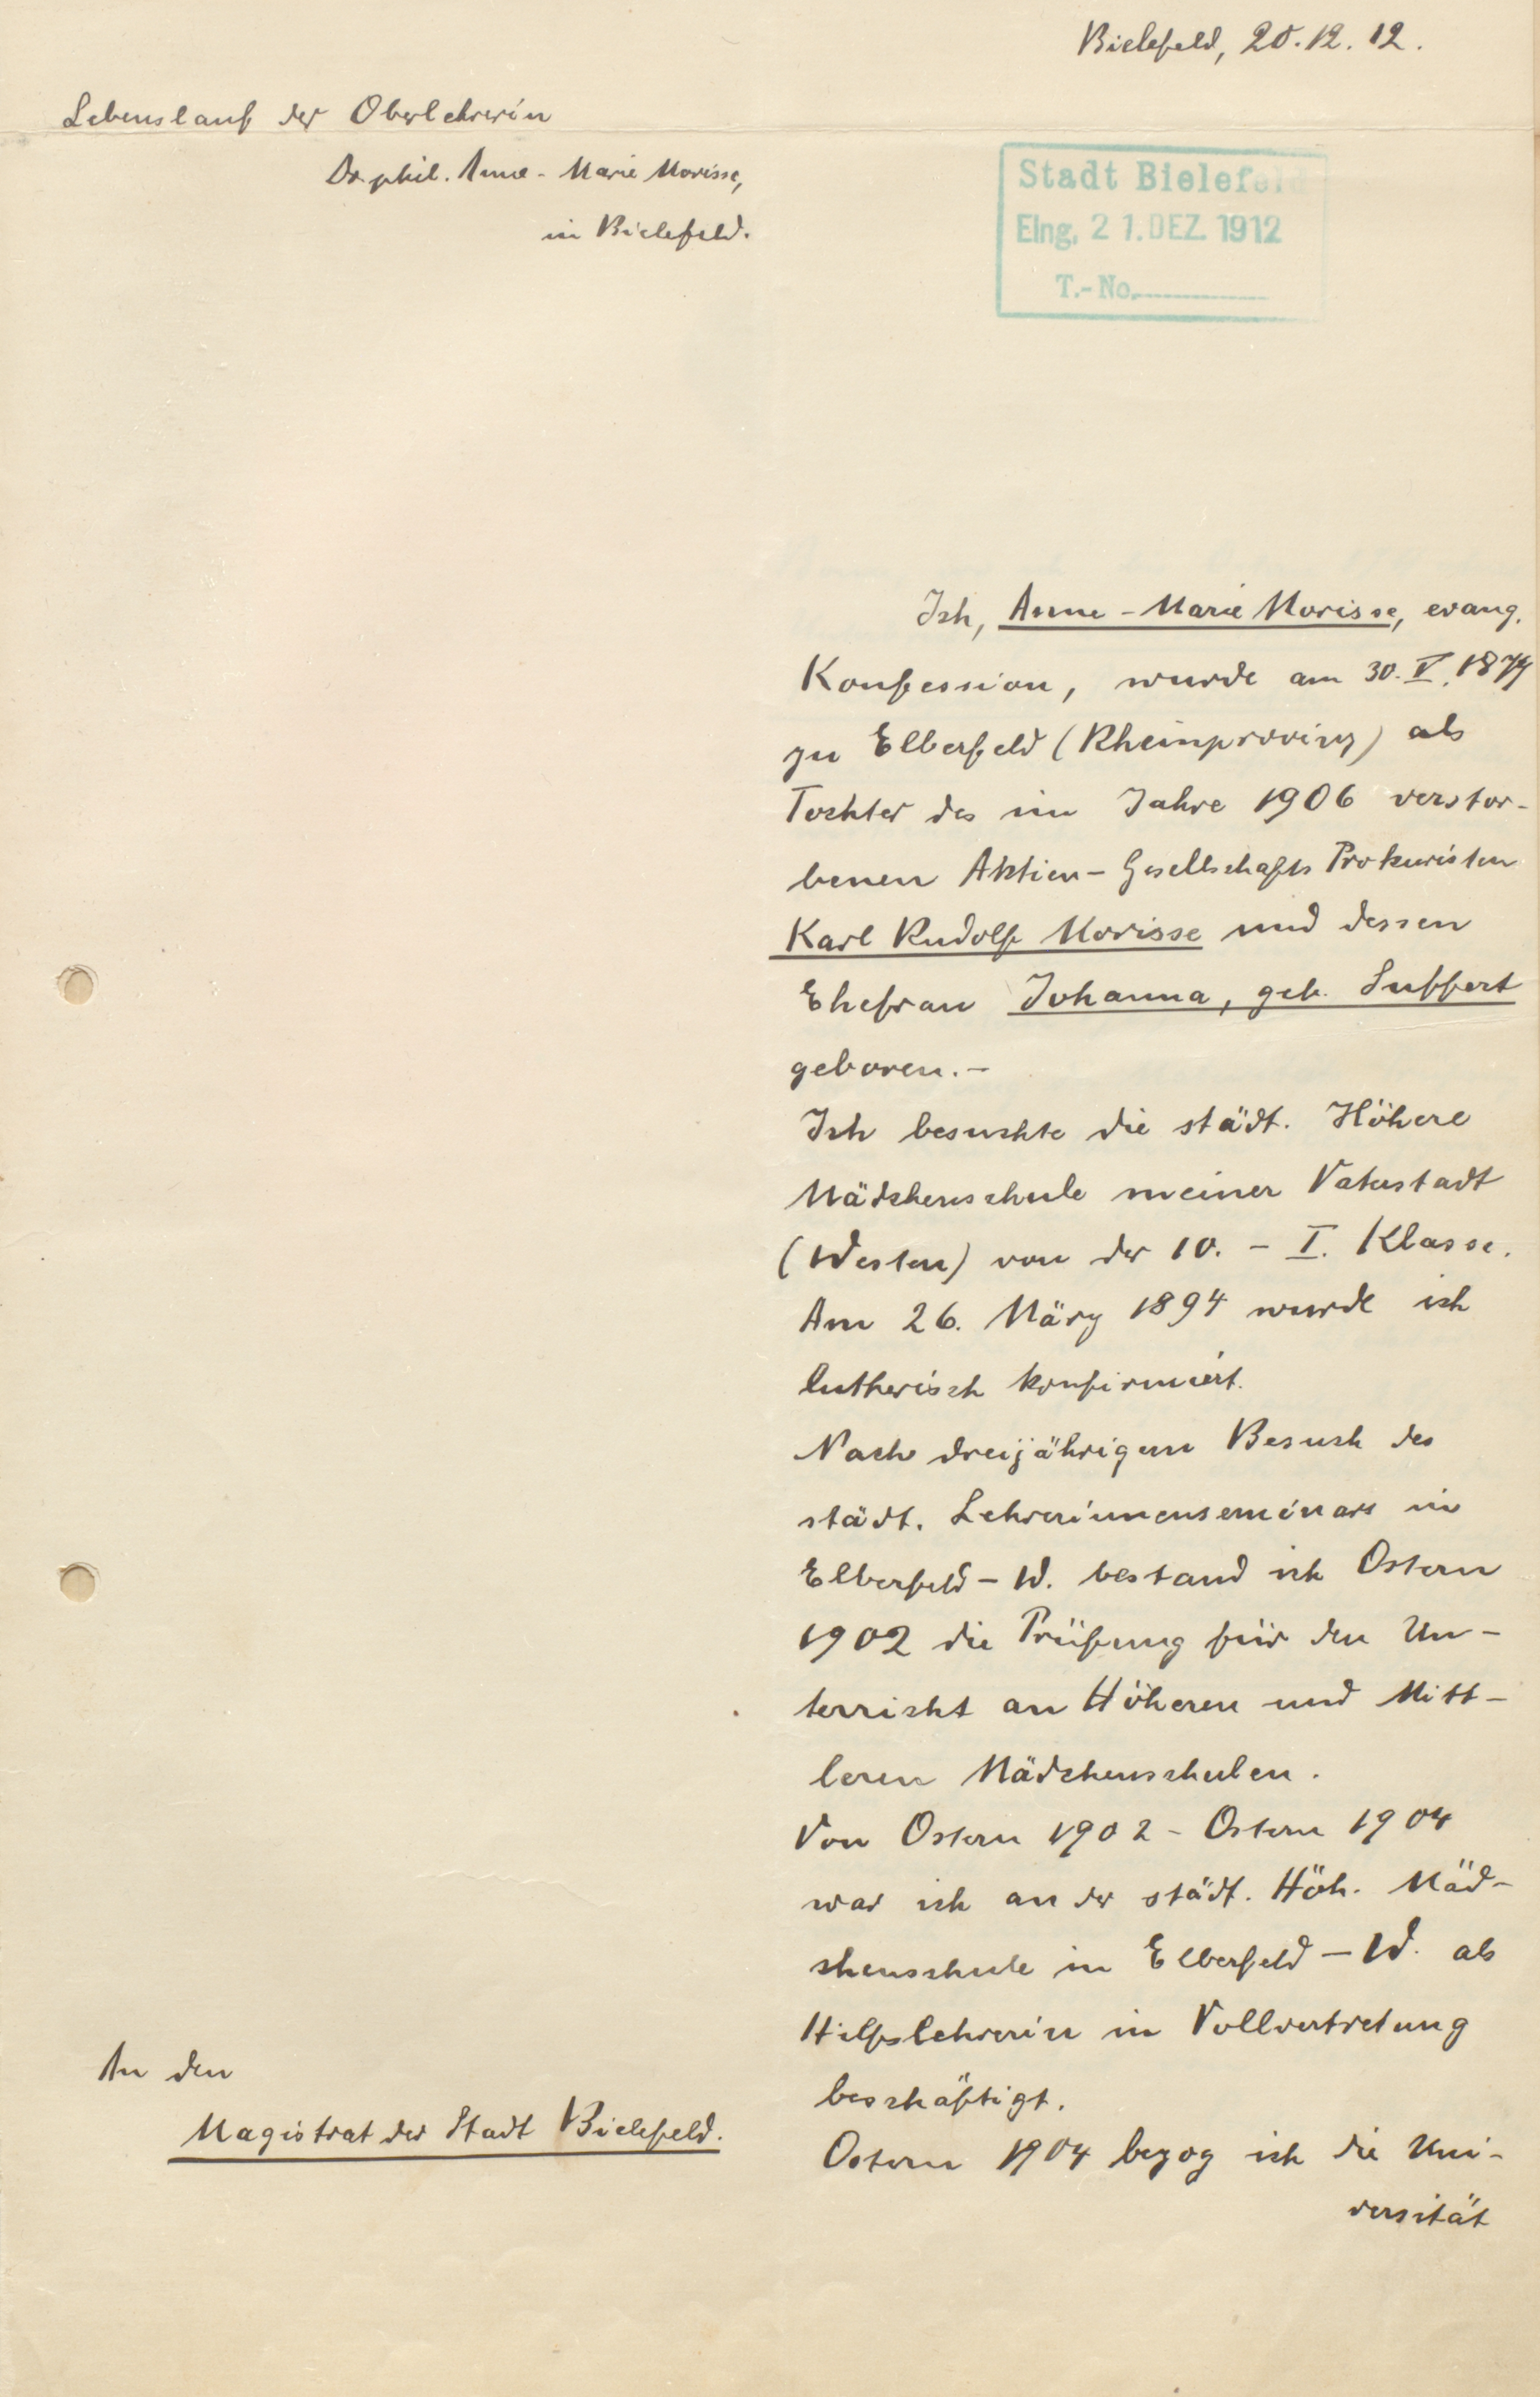 Bielefeld, 20.12.12.
Lebenslauf der Oberlehrerin
Dr. phil. Anne-Marie Morisse,
in Bielefeld.
Stadt Bielefeld
Eing. 21. DEZ. 1912
T.-No.
Ich, Anne-Marie Morisse, evang.
Konfession, wurde am 30. V. 1879
zu Elberfeld (Rheinprovinz) als
Tochter des im Jahre 1906 verstor-
benen Aktien-Gesellschafts Prokuristen
Karl Rudolf Morisse und dessen
Ehefrau Johanna, geb. Luppert
geboren.-
Ich besuchte die städt. Höhere
Mädchenschule meiner Vaterstadt
(Westen) von der 10. - I. Klasse.
Am 26. März 1894 wurde ich
lutherisch konfirmiert.
Nach dreijährigem Besuch des
städt. Lehrerinnenseminars in
Elberfeld-W. bestand ich Ostern
1902 die Prüfung für den Un-
terricht an Höheren und Mitt-
leren Mädchenschulen.
Von Ostern 1902 - Ostern 1904
war ich an der städt. Höh. Mäd-
chenschule in Elberfeld-W. als
Hilfslehrerin in Vollvertretung
beschäftigt.
Ostern 1904 bezog ich die Uni-
versität
An den
Magistrat der Stadt Bielefeld.